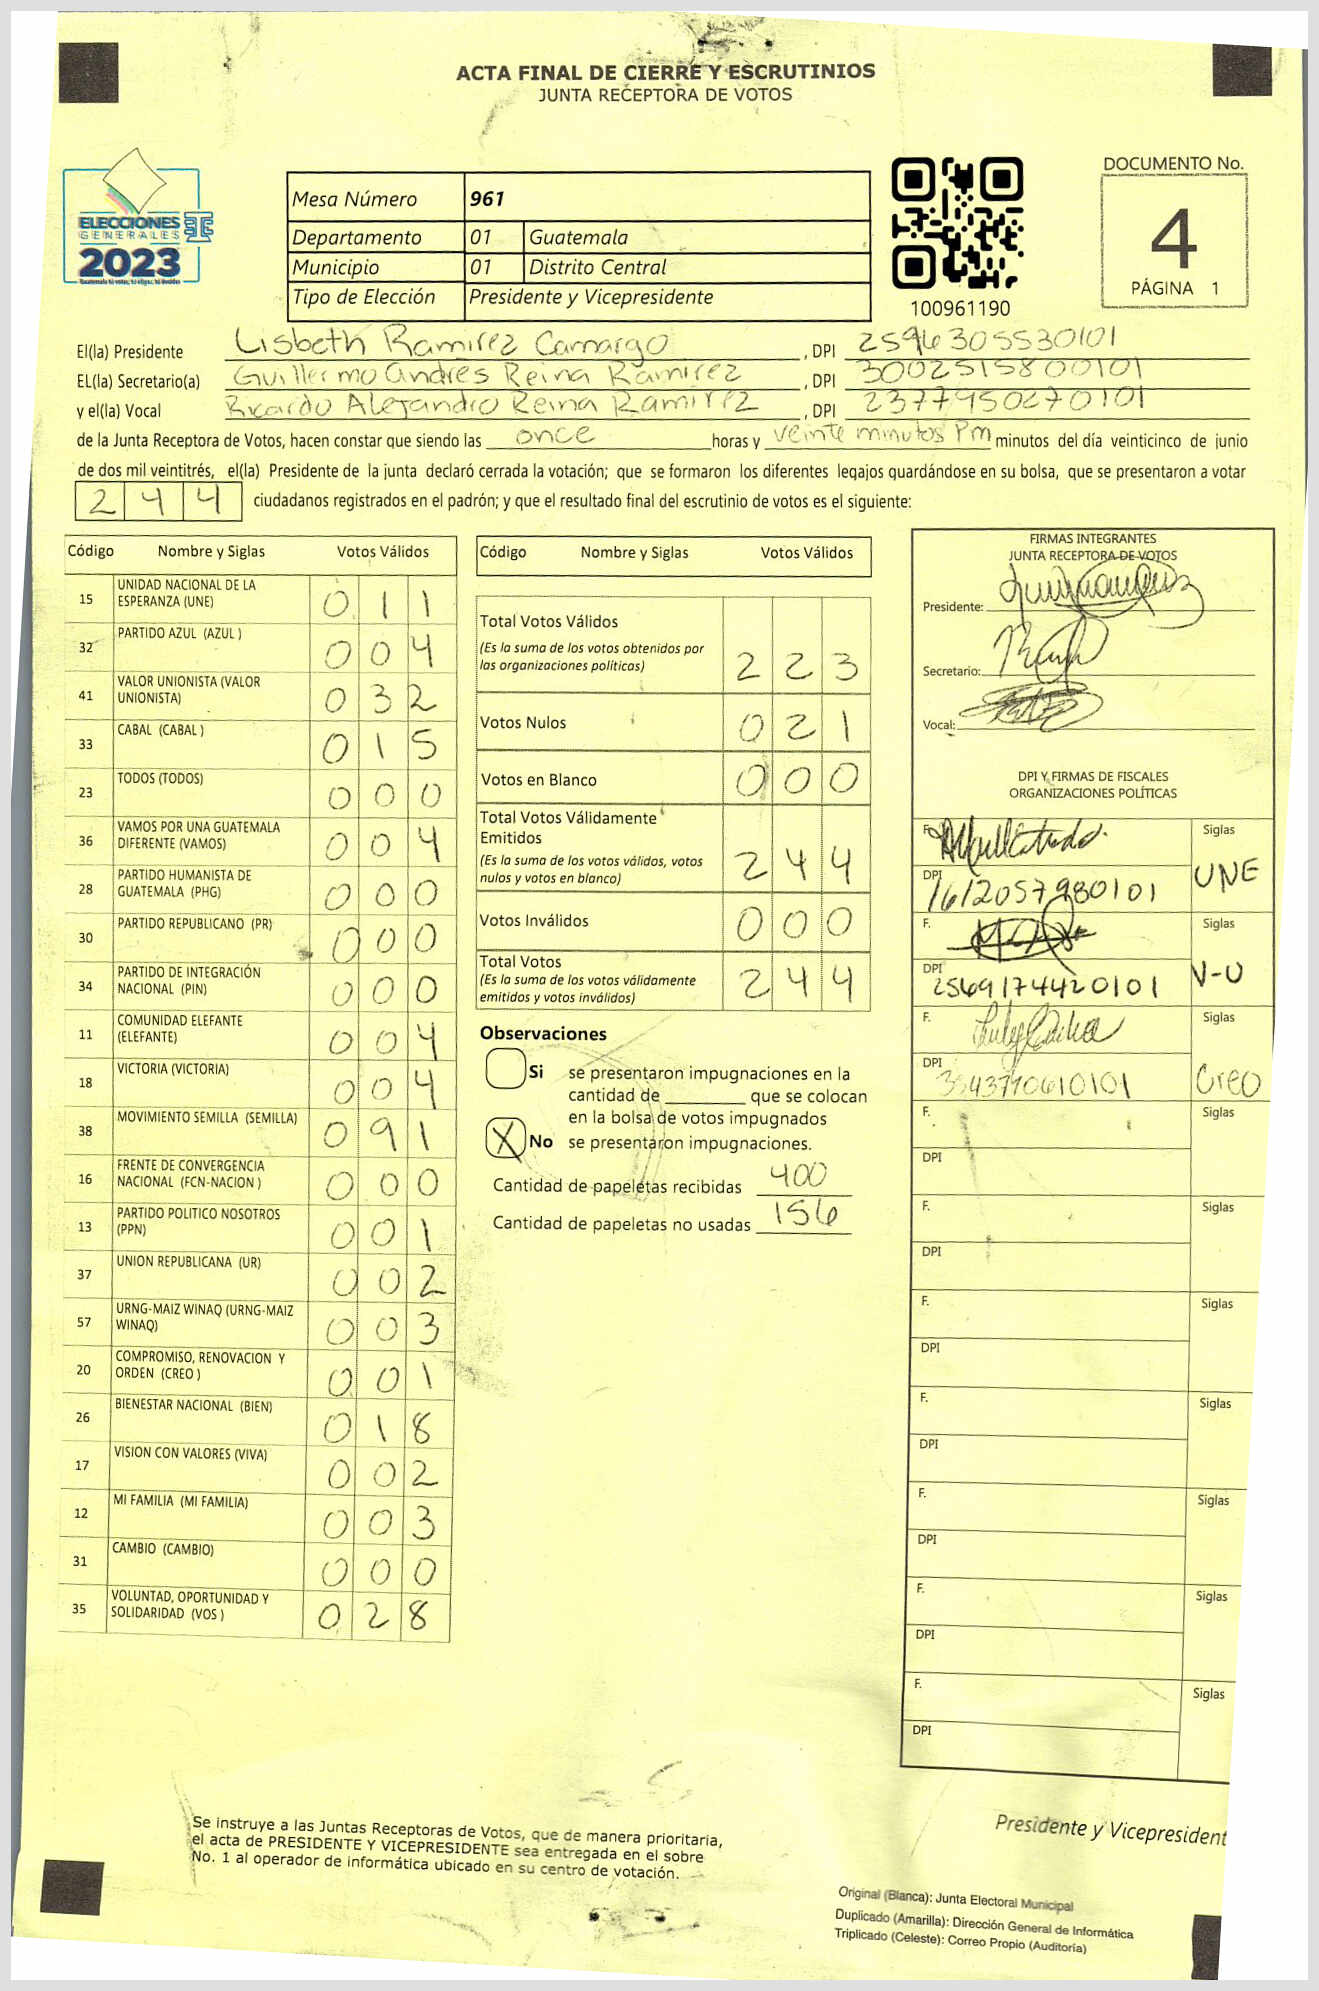 ACTA FINAL DE CIERRE Y ESCRUTINIOS
JUNTA RECEPTORA DE VOTOS
ELECCIONES
GENERALES
2023
Mesa Número 961
Departamento 01 Guatemala
Municipio 01 Distrito Central
Tipo de Elección Presidente y Vicepresidente
100961190
DOCUMENTO No.
4
PÁGINA 1
El(la) Presidente Lisbeth Ramirez Camargo, DPI 2596305530101
EL(la) Secretario(a) Guillermo Andres Reina Ramirez, DPI 3002515800101
y el(la) Vocal Ricardo Alejandro Reina Ramirez, DPI 2377950270101
de la Junta Receptora de Votos, hacen constar que siendo las once horas y veinte minutos Pm minutos del día veinticinco de junio
de dos mil veintitrés, el(la) Presidente de la junta declaró cerrada la votación; que se formaron los diferentes legajos quardándose en su bolsa, que se presentaron a votar
244 ciudadanos registrados en el padrón; y que el resultado final del escrutinio de votos es el siguiente:
Código Nombre y Siglas Votos Válidos
15 UNIDAD NACIONAL DE LA ESPERANZA (UNE) 011
32 PARTIDO AZUL (AZUL ) 004
41 VALOR UNIONISTA (VALOR UNIONISTA) 032
33 CABAL (CABAL ) 015
23 TODOS (TODOS) 000
36 VAMOS POR UNA GUATEMALA DIFERENTE (VAMOS) 004
28 PARTIDO HUMANISTA DE GUATEMALA (PHG) 000
30 PARTIDO REPUBLICANO (PR) 000
34 PARTIDO DE INTEGRACIÓN NACIONAL (PIN) 000
11 COMUNIDAD ELEFANTE (ELEFANTE) 004
18 VICTORIA (VICTORIA) 004
38 MOVIMIENTO SEMILLA (SEMILLA) 091
16 FRENTE DE CONVERGENCIA NACIONAL (FCN-NACION ) 000
13 PARTIDO POLITICO NOSOTROS (PPN) 001
37 UNION REPUBLICANA (UR) 002
57 URNG-MAIZ WINAQ (URNG-MAIZ WINAQ) 003
20 COMPROMISO, RENOVACION Y ORDEN (CREO ) 001
26 BIENESTAR NACIONAL (BIEN) 018
17 VISION CON VALORES (VIVA) 002
12 MI FAMILIA (MI FAMILIA) 003
31 CAMBIO (CAMBIO) 000
35 VOLUNTAD, OPORTUNIDAD Y SOLIDARIDAD (VOS ) 028
Código Nombre y Siglas Votos Válidos
Total Votos Válidos
(Es la suma de los votos obtenidos por
las organizaciones politicas) 223
Votos Nulos 021
Votos en Blanco 000
Total Votos Válidamente
Emitidos
(Es la suma de los votos válidos, votos
nulos y votos en blanco) 244
Votos Inválidos 000
Total Votos
(Es la suma de los votos válidamente
emitidos y votos inválidos) 244
Observaciones
Si se presentaron impugnaciones en la
cantidad de ________ que se colocan
en la bolsa de votos impugnados
X No se presentaron impugnaciones.
Cantidad de papeletas recibidas 400
Cantidad de papeletas no usadas 156
FIRMAS INTEGRANTES
JUNTA RECEPTORA DE VOTOS
Presidente:
Secretario:
Vocal:
DPI Y FIRMAS DE FISCALES
ORGANIZACIONES POLÍTICAS
F. Siglas
DPI 1612057980101 UNE
F. Siglas
DPI 2569174420101 V-U
F. Siglas
DPI Creo
F. Siglas
DPI
F. Siglas
DPI
F. Siglas
DPI
F. Siglas
DPI
F. Siglas
DPI
F. Siglas
DPI
F. Siglas
DPI
Se instruye a las Juntas Receptoras de Votos, que de manera prioritaria,
el acta de PRESIDENTE Y VICEPRESIDENTE sea entregada en el sobre
No. 1 al operador de informática ubicado en su centro de votación.
Presidente y Vicepresident
Original (Blanca): Junta Electoral Municipal
Duplicado (Amarilla): Dirección General de Informática
Triplicado (Celeste): Correo Propio (Auditoría)